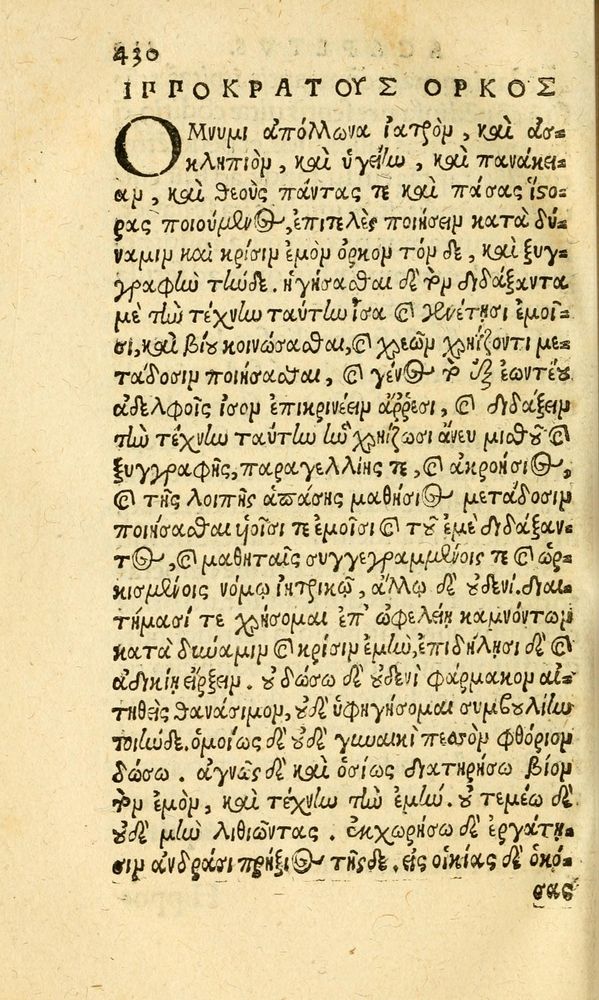 430
ΙΠΠΟΚΡΑΤΟΥΣ ΟΡΚΟΣ
ΟΜνυμι ἀπόλλωνα ἰατρὸν, καὶ ἀσ-
κληπιὸν, καὶ ὑγείην, καὶ πανάκει-
αν, καὶ θεοὺς πάντας τε καὶ πάσας ἵστο-
ρας ποιούμενος, ἐπιτελὲς ποιήσειν κατὰ δύ-
ναμιν καὶ κρίσιν ἐμὸν ὅρκον τόνδε, καὶ ξυγ-
γραφὴν τήνδε. ἡγήσασθαι δὲ τὸν διδάξαντα
μὲ τὴν τέχνην ταύτην ἶσα καὶ γενέτῃσι ἐμοῖ-
σι, καὶ βίου κοινώσασθαι, καὶ χρεῶν χρηΐζοντι με-
τάδοσιν ποιήσασθαι, καὶ γένος τὸ ἐξ ἑωυτέου
ἀδελφοῖς ἴσον ἐπικρινέειν ἄῤῥεσι, καὶ διδάξειν
τὴν τέχνην ταύτην ἢν χρηΐζωσι ἄνευ μισθοῦ καὶ
ξυγγραφῆς, παραγγελίης τε, καὶ ἀκροήσιος,
καὶ τῆς λοιπῆς ἁπάσης μαθήσιος μετάδοσιν
ποιήσασθαι υἱοῖσι τε ἐμοῖσι καὶ τοῦ ἐμὲ διδάξαν-
τος, καὶ μαθηταῖς συγγεγραμμένοις τε καὶ ὡρ-
κισμένοις νόμῳ ἰητρικῷ, ἄλλῳ δὲ οὐδενί. διαι-
τήμασί τε χρήσομαι ἐπ' ὠφελείῃ καμνόντων
κατὰ δύναμιν καὶ κρίσιν ἐμὴν, ἐπὶ δηλήσι δὲ καὶ
ἀδικίῃ εἴρξειν. οὐ δώσω δὲ οὐδενὶ φάρμακον αἰ-
τηθεὶς θανάσιμον, οὐδὲ ὑφηγήσομαι συμβουλίην
τοιήνδε. ὁμοίως δὲ οὐδὲ γυναικὶ πεσσὸν φθόριον
δώσω. ἁγνῶς δὲ καὶ ὁσίως διατηρήσω βίον
τὸν ἐμὸν, καὶ τέχνην τὴν ἐμήν. οὐ τεμέω δὲ
οὐδὲ μὴν λιθιῶντας. ἐκχωρήσω δὲ ἐργάτῃ-
σιν ἀνδράσι πρήξιος τῆσδε. εἰς οἰκίας δὲ ὁκό-
σας